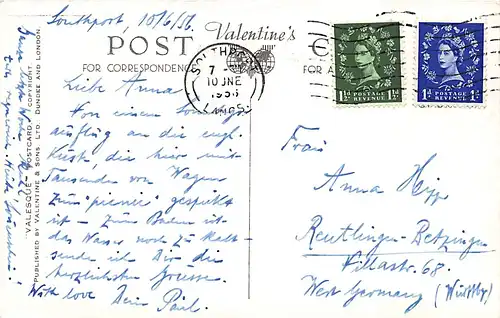 Southport, 10/6/56.
Valentine's
POST C
FOR CORRESPONDENCE FOR A
SOUTHPORT
7 -
10 JNE
1956
LANCS
1½d POSTAGE REVENUE 1½d
1d POSTAGE REVENUE 1d
Liebe Anna!
Von einem Sonntags
ausflug an die engl.
Küste, die hier mit
Tausenden von Wagen
zum "picnic" gespickt
ist – zum Baden ist
das Wasser noch zu kalt –
sende ich Dir die
herzlichsten Grüsse.
With love Dein Paul.
Frau
Anna Hipp
Reutlingen-Betzingen
Villastr. 68.
West Germany (Württbg.)
"VALESQUE" POSTCARD COPYRIGHT
PUBLISHED BY VALENTINE & SONS, LTD. DUNDEE AND LONDON.